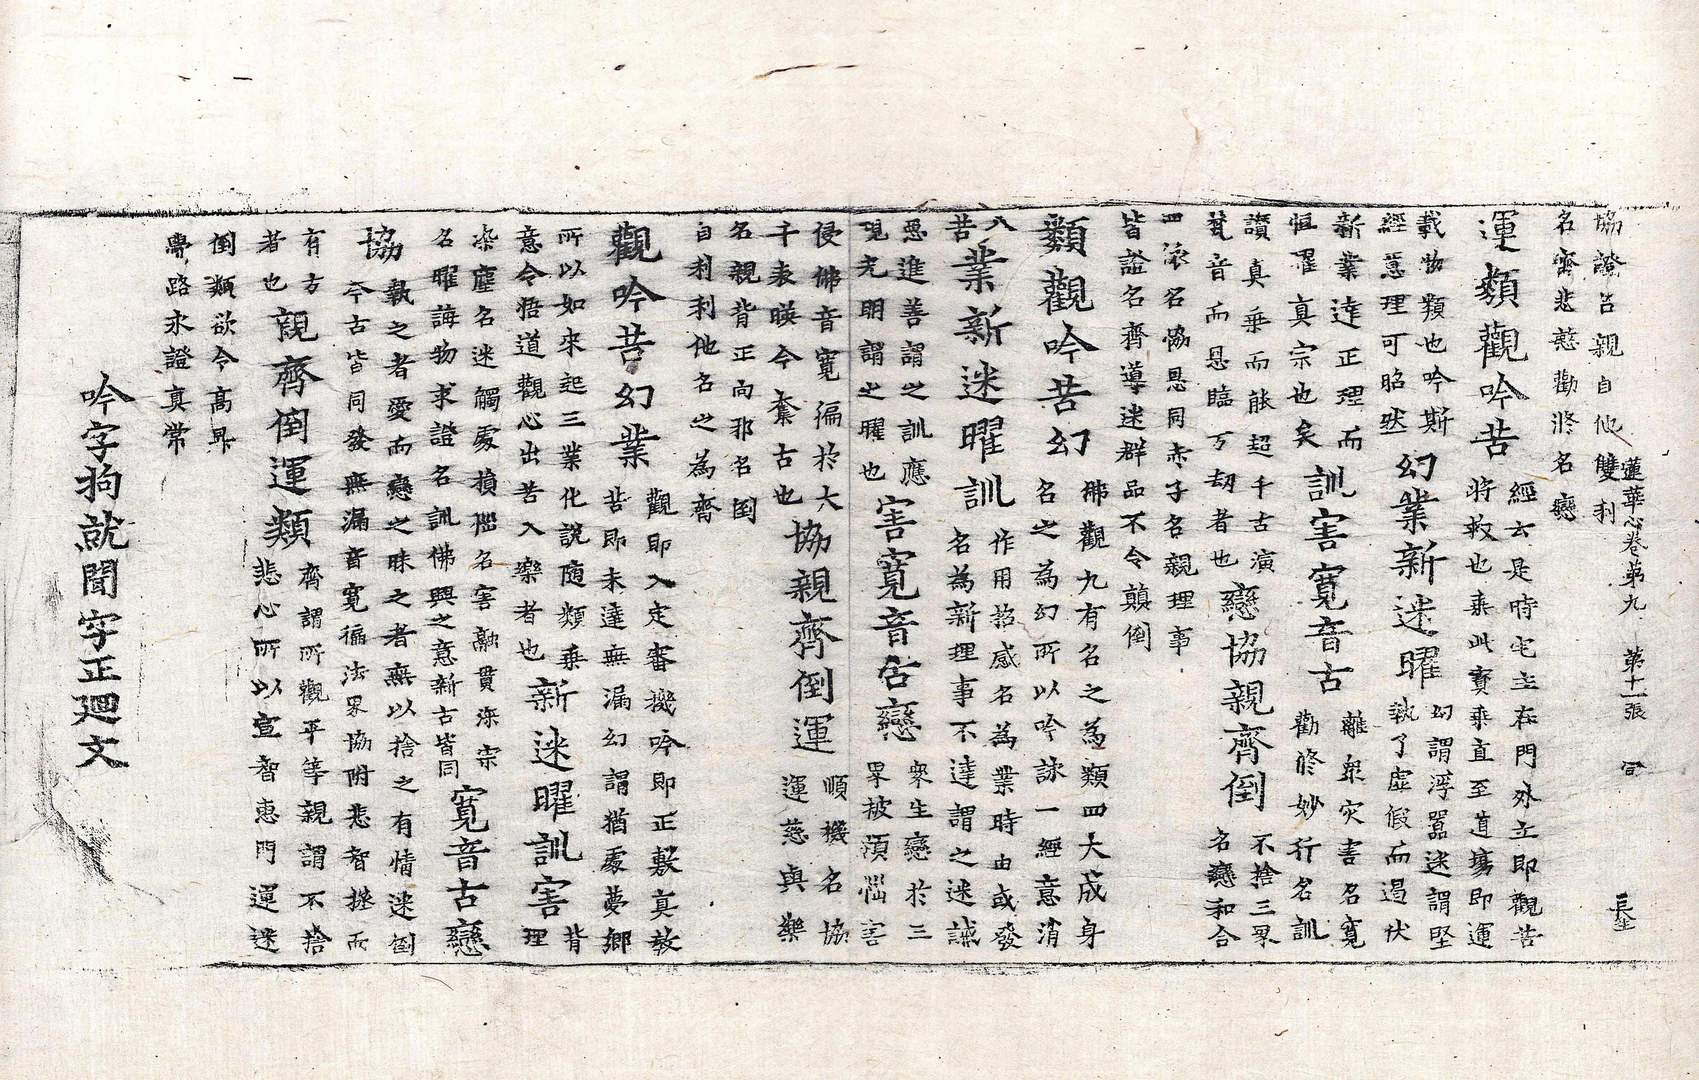 協證名親自他雙利
名齊悲慈勸修名戀
運類觀吟苦
經云是時宅主在門外立即觀苦
將救也乘此寶乘直至道場即運
載物類也吟斯
經意理可昭然
幻業新迷曜
幻謂浮囂迷謂堅
執了虛假而過伏
新業達正理而
恒曜真宗也矣
訓害寬音古
離衆灾害名寬
勸修妙行名訓
讚真乘而能超千古演
梵音而恩臨万劫者也
戀協親齊倒
不捨三界
名戀和合
四流名協恩同赤子名親理事
皆證名齊導迷群品不令顛倒
類觀吟苦幻
佛觀九有名之為類四大成身
名之為幻所以吟詠一經意消
八苦
業新迷曜訓
作用招感名為業時由或發
名為新理事不達謂之迷誡
惡進善謂之訓應
現光明謂之曜也
害寬音古戀
衆生戀於三
界被煩惱害
侵佛音寬徧於大
千表暎今騫古也
協親齊倒運
順機名協
運慈與樂
名親背正向邪名倒
自利利他名之為齊
觀吟苦幻業
觀即入定審機吟即正敷真教
苦即未達無漏幻謂猶處夢鄉
所以如來起三業化說随類乗
意令悟道觀心出苦入樂者也
新迷曜訓害
背理
染塵名迷觸處損惱名害融貫深宗
名曜誨物求證名訓佛興之意新古皆同
寬音古戀
協
執之者愛而戀之昧之者無以捨之有情迷倒
今古皆同發無漏音寬徧法界協附悲智拯而
有方
者也
親齊倒運類
齊謂所觀平等親謂不捨
悲心所以宣智惠門運迷
倒類欲令高昇
覺路永證真常
吟字拘就聞字正廻文
蓮華心卷第九　第十一張